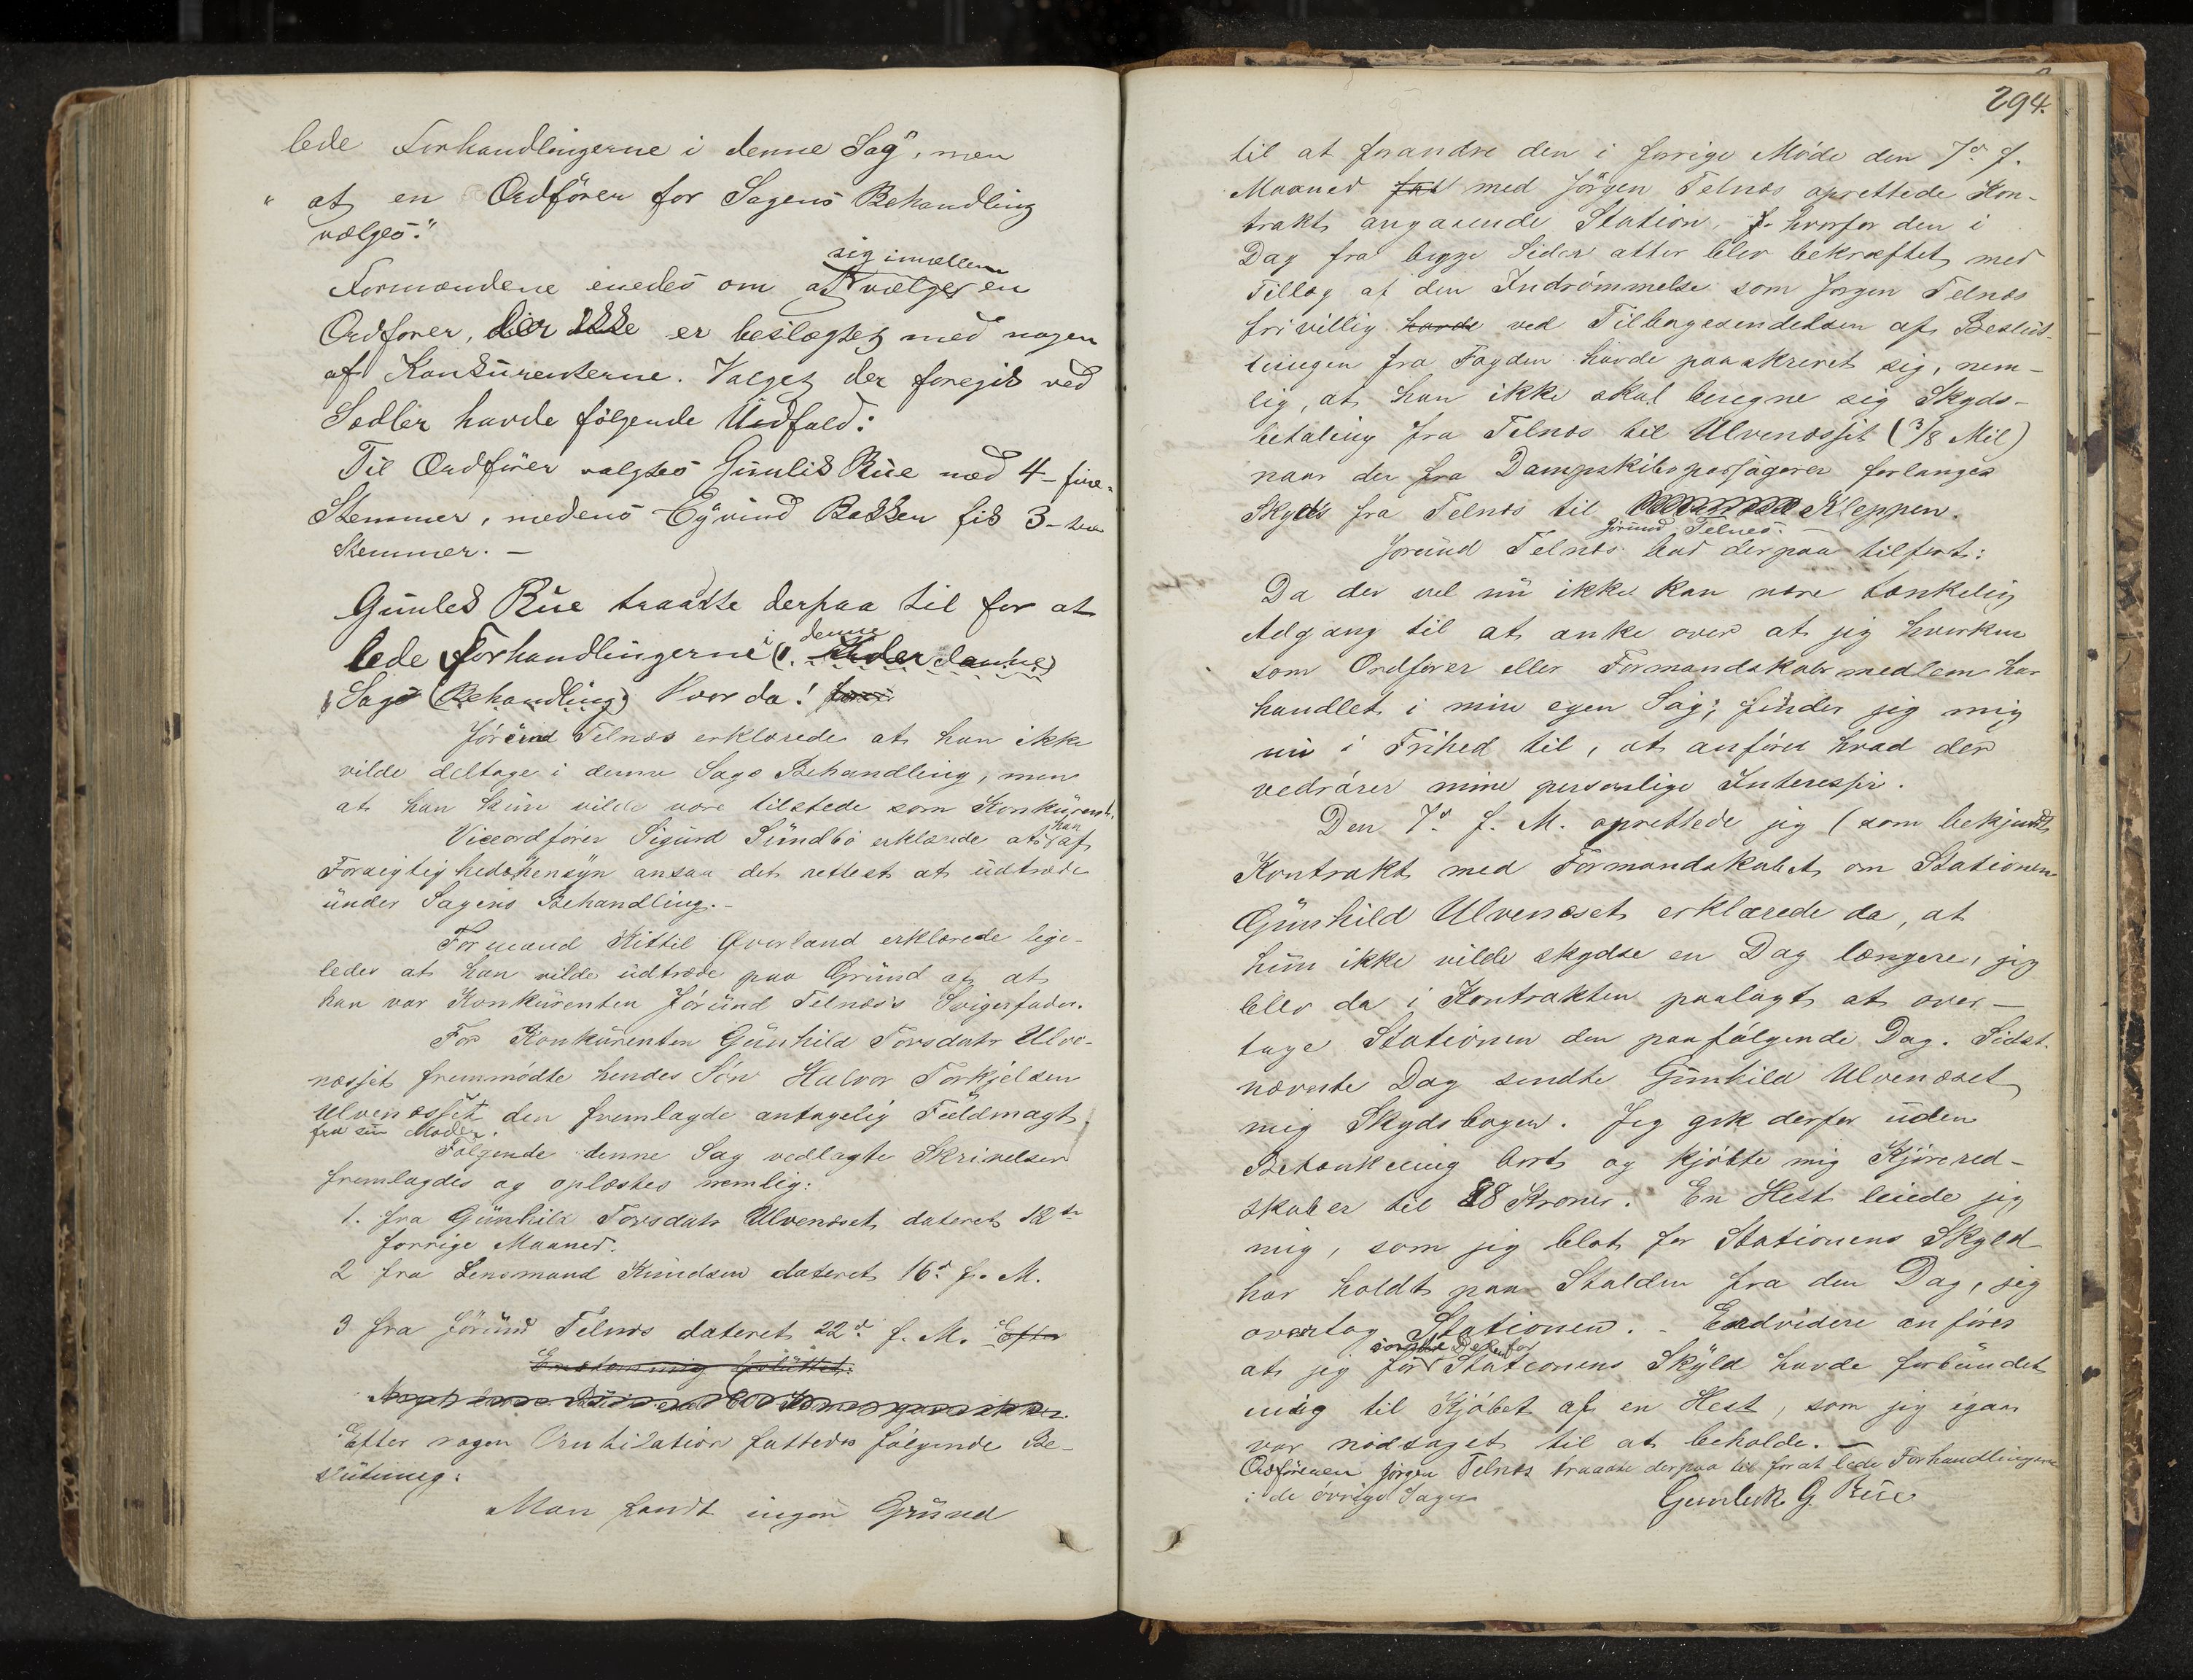 lede Forhandlingerne i denne Sag", men
" at en Ordförer for Sagens Behandling
vælges."
sig imellem
Formændene enedes om at vælge en
Ordförer, der ikke er beslægtet med nogen
af Konkurenterne. Valget der foregik ved
Sedler havde følgende Udfald:
Til Ordförer valgtes Gunlik Rue med 4 - fire -
Stemmer, medens Eyvind Bakken fik 3 - tre
Stemmer. -
Gunlek Rue traadte derpaa til for at
denne
lede Forhandlingerne i (under denne)
Sags (Behandling) Hvorda!
Jörund Telnes erklærede at han ikke
vilde deltage i denne Sags Behandling, men
at han kun vilde være tilstede som Konkurent.
han
Viceordförer Sigurd Sundbö erklærede at af
Forsigtighedshensyn ansaa det rettest at udtræde
under Sagens Behandling. -
Formand Kittil Överland erklærede lige-
ledes at han vilde udtræde paa Grund af at
han var Konkurenten Jörund Telnes's Svigerfader.
For Konkurenten Gunhild Torsdatr Ulve-
næsset fremmödte hendes Sön Halvor Torkjelsen
Ulvenæsset der fremlagde antagelig Fuldmagt
fra sin Moder.
Følgende denne Sag vedlagte Skrivelser
fremlagdes og oplæstes nemlig:
1. fra Gunhild Torsdatr Ulvenæset dateret 12te
forrige Maaned.
2 fra Lensmand Knudsen dateret 16d. f. M.
3 fra Jörund Telnes dateret 22d. f. M. Efter
Efter nogen Ventilation fattedes følgende Be-
slutning:
Man fandt ingen Grund
294.
til at forandre den i forrige Möde den 7d. f.
Maaned med Jörgen Telnes oprettede Kon-
trakt angaaende Station, hvorfor den i
Dag fra begge Sider atter blev bekræftet med
Tillæg af den Indrömmelse som Jørgen Telnes
frivillig havde ved Tilbagesendelsen af Beslut-
ningen fra Fogden havde paaskrevet sig, nem-
lig, at han ikke skal beregne sig Skyds-
betaling fra Telnes til Ulvenæsset (3/8 Mil)
naar der fra Dampskibspassagerer forlanges
Skyds fra Telnes til Kleppen.
Jörund Telnes.
Jorund Telnes bad derpaa tilført:
Da der vel nu ikke kan være tænkelig
Adgang til at anke over at jeg hverken
som Ordfører eller Formandskabsmedlem har
handlet i min egen Sag; finder jeg mig
nu i Frihed til, at anføre hvad der
vedrører mine personlige Interesser.
Den 7d. f. M. oprettede jeg (som bekjendt)
Kontrakt med Formandskabet om Stationen
Gunhild Ulvenæset erklærede da, at
hun ikke vilde skydse en Dag længere, jeg
blev da i Kontrakten paalagt at over-
tage Stationen den paafølgende Dag. Sidst-
nævnte Dag sendte Gunhild Ulvenæset
mig Skydsbogen. Jeg gik derfor uden
Betænkning bort og kjöbte mig Kjørered-
skaber til 88 Kroner. En Hest leiede jeg
mig, som jeg blot for Stationens Skyld
har holdt paa Stalden fra den Dag, jeg
overtog Stationen. - Endvidere anføres
at jeg for Stationens Skyld havde forbundet
mig til Kjöbet af en Hest, som jeg igaar
var nödsaget til at beholde. -
Ordföreren Jörgen Telnes traadte derpaa til for at lede Forhandlingerne
i de øvrige Sager
Gunleik G. Rue